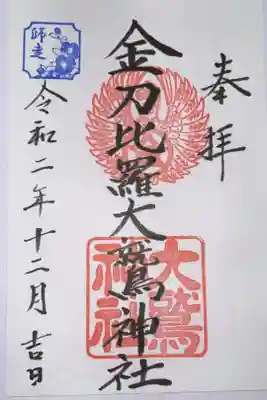 奉拝
金刀比羅大鷲神社
大鷲
神社
令和二年十二月吉日
師走